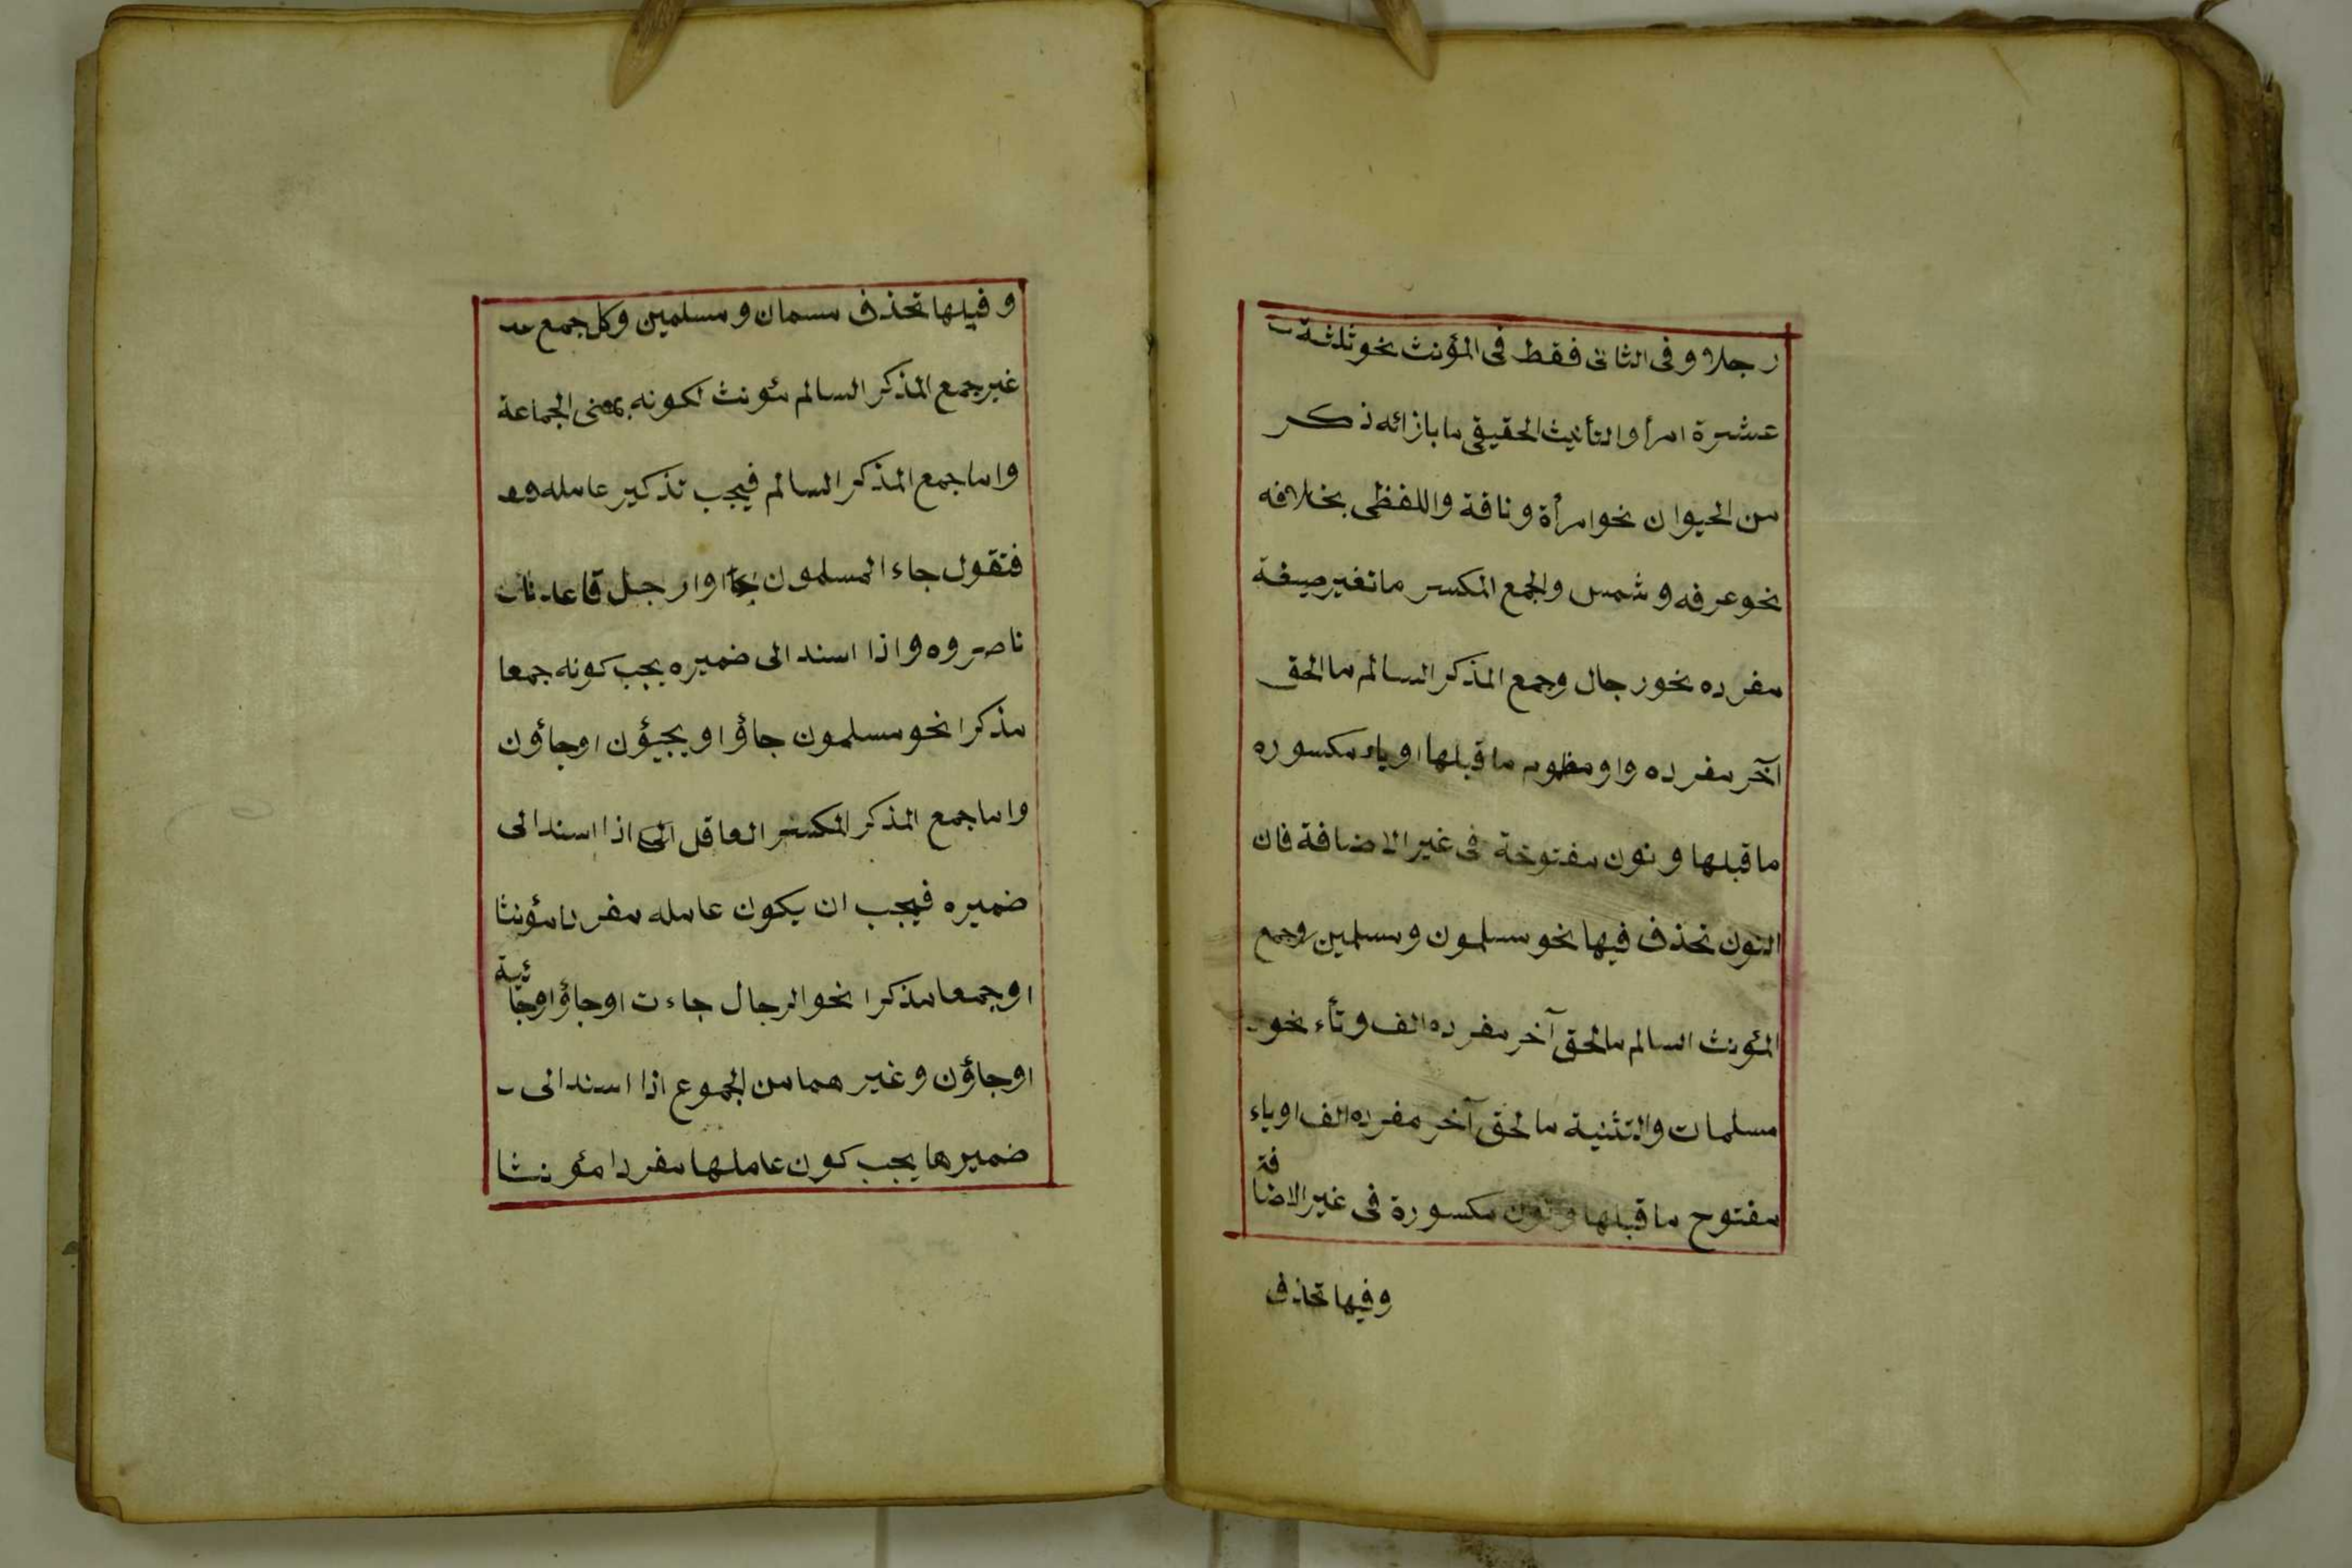 رجلا و فى الثانى فقط فى المؤنث نحو ثلثة
عشرة امرأ والتأنيث الحقيقى ما بازائه ذكر
من الحيوان نحو امرأة و ناقة واللفظى بخلافه
نحو عرفه و شمس والجمع المكسر ما تغير صيغة
مفرده نحو رجال وجمع المذكر السالم ما الحق
آخر مفرده واو مظموم ما قبلها او ياء مكسوره
ما قبلها و نون مفتوحة فى غير الاضافة فان
النون تحذف فيها نحو مسلمون و مسلمين وجمع
المؤنث السالم ما لحق آخر مفرده الف و تأء نحو
مسلمات والتثنية ما لحق آخر مفرده الف او ياء
مفتوح ما قبلها و نون مكسورة فى غير الاضافة
وفيها تحذف
و فيلها تحذف مسمان و مسلمين وكل جمع
غير جمع المذكر السالم مئونث لكونه بمعنى الجماعة
واما جمع المذكر السالم فيجب تذكير عامله
فتقول جاء المسلمون او ارجل قاعد
ناصروه واذا اسند الى ضميره يجب كونه جمعا
مذكرا نحو مسلمون جاؤا او يجيؤن اوجاؤن
واما جمع المذكر المكسر العاقل اذا اسند الى
ضميره فيجب ان يكون عامله مفردا مؤنثا
او جمعا مذكرا نحو الرجال جاءت اوجاؤا اوجائية
اوجاؤن و غيرهما من الجموع اذا اسند الى
ضميرها يجب كون عاملها مفردا مئونثا